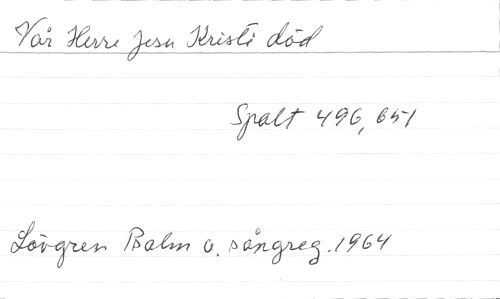 Vår Herre Jesu Kristi död
Spalt 496, 651
Lövgren Psalm o. sångreg. 1964